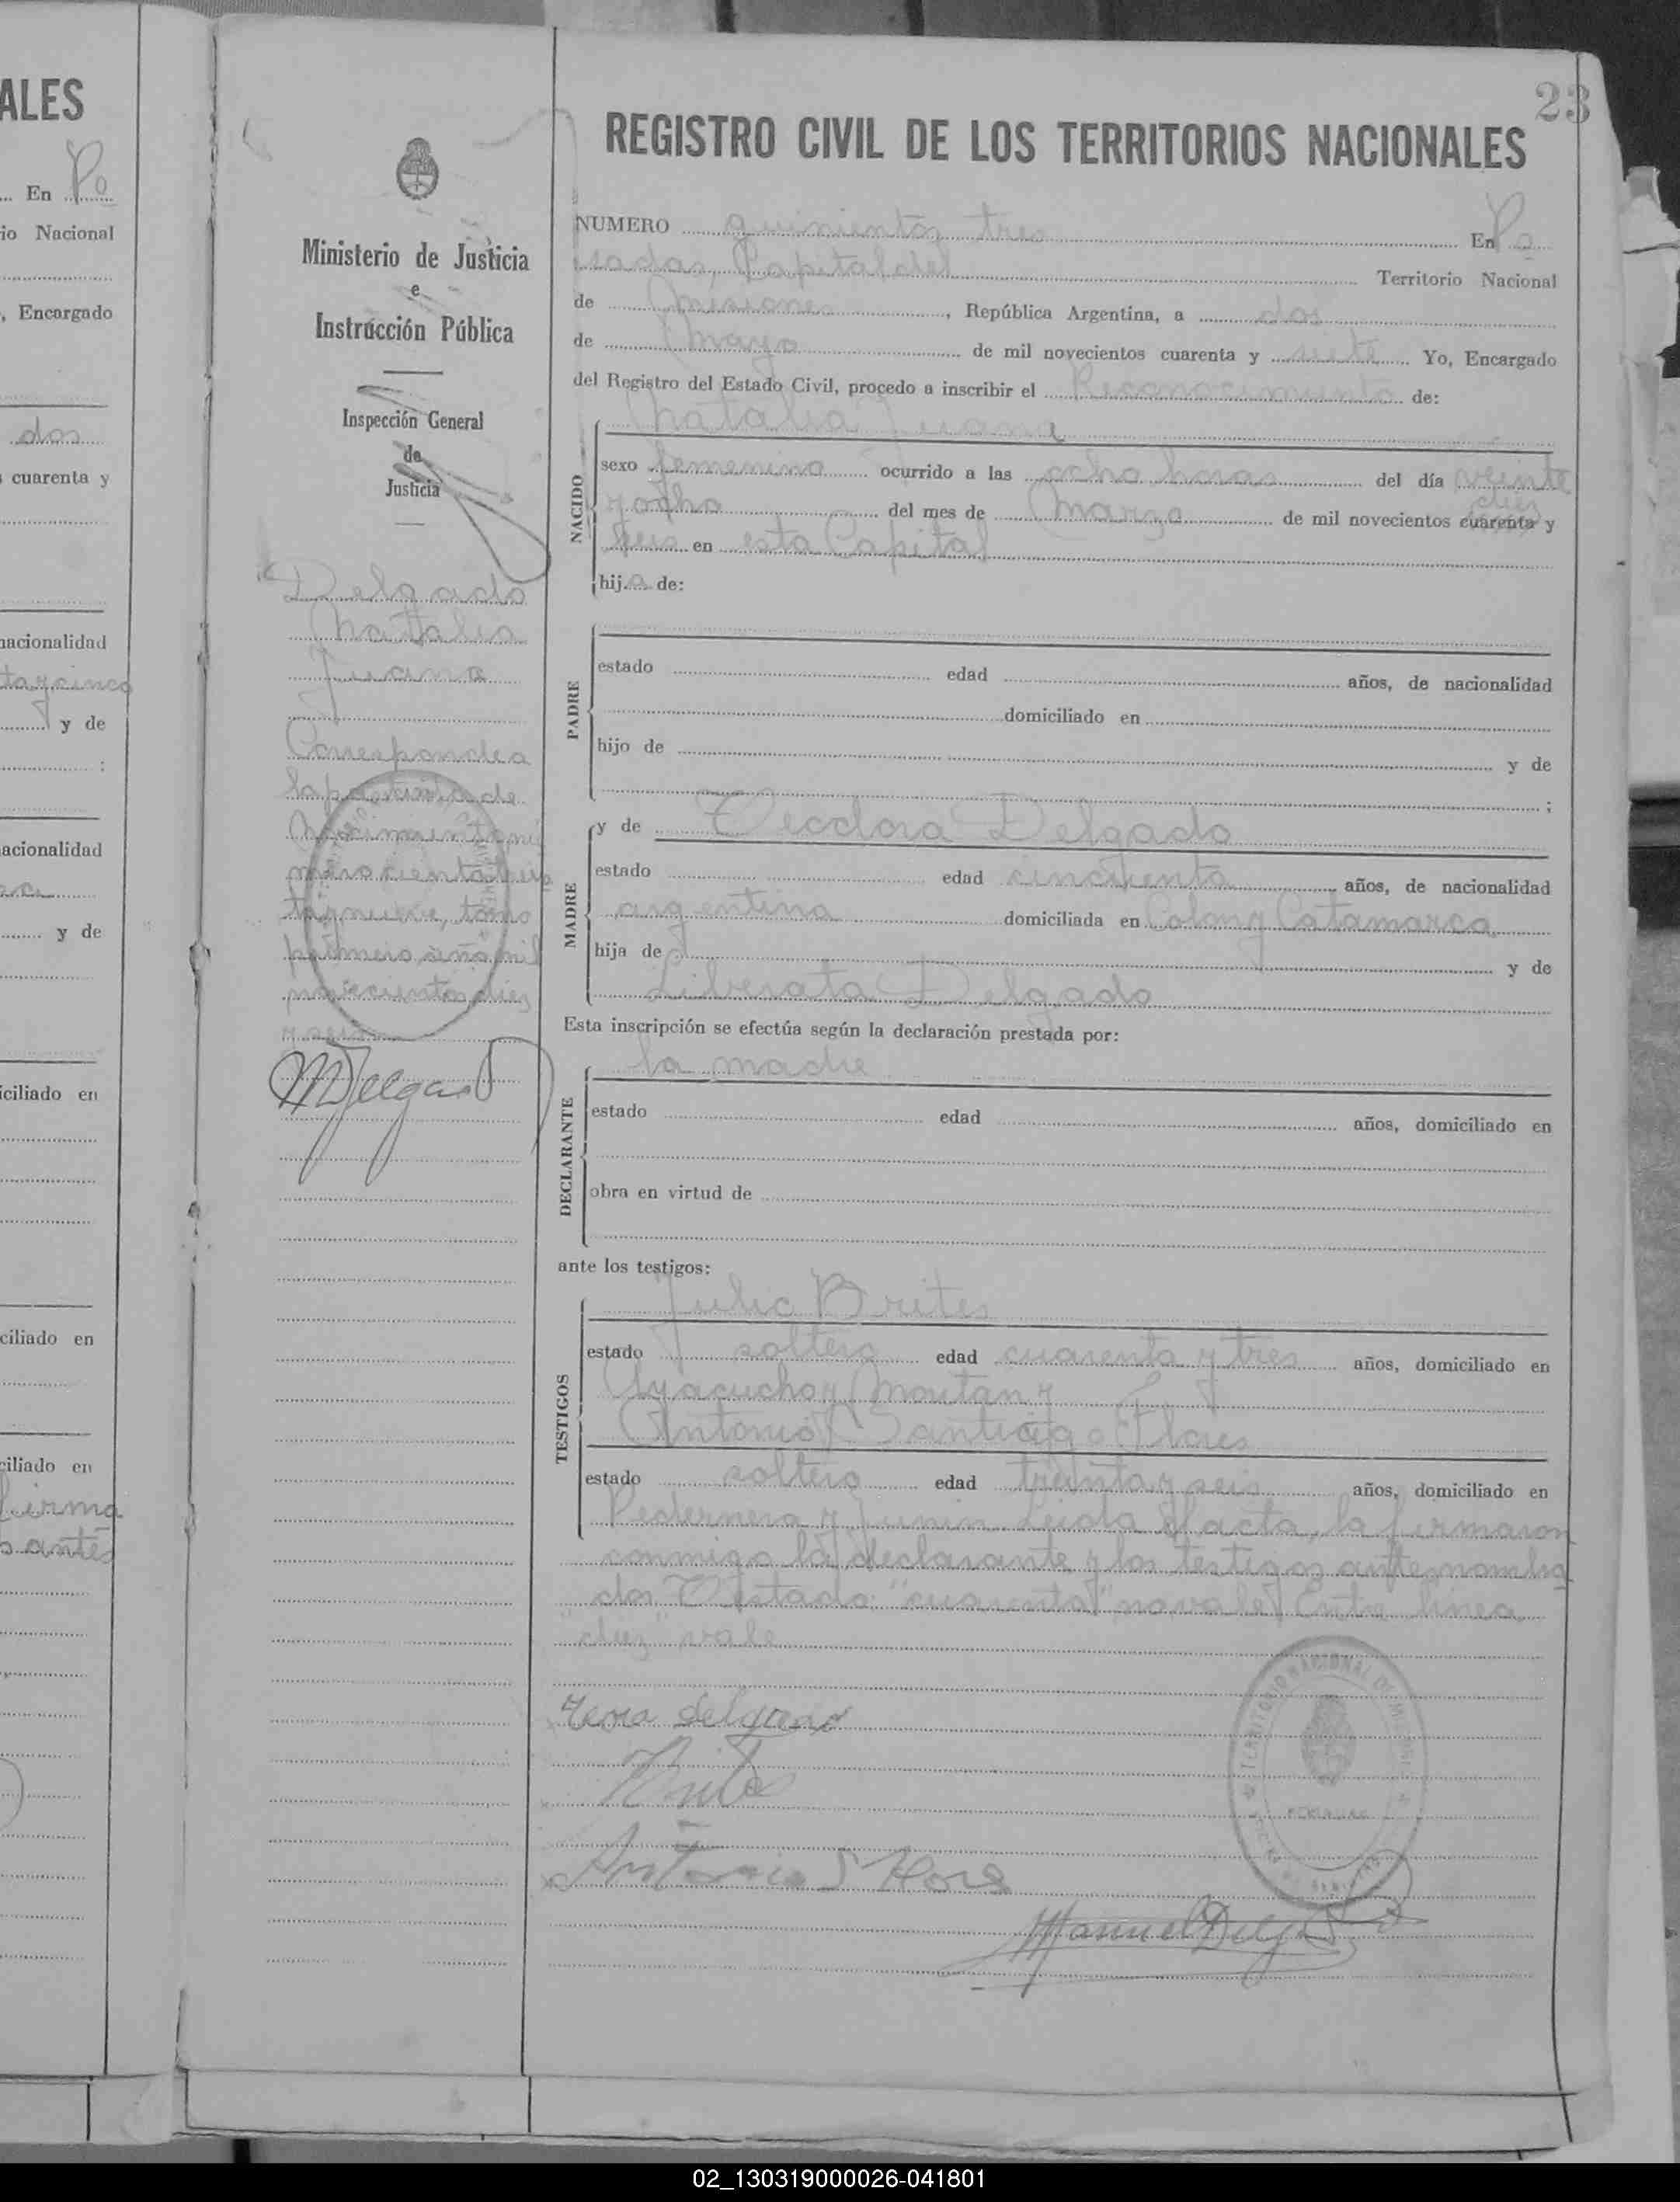 ALES
... En Po
io Nacional
, Encargado
dos
cuarenta y
nacionalidad
ta y cinco
y de
:
acionalidad
y de
iciliado en
ciliado en
ciliado en
firma
antes
23
REGISTRO CIVIL DE LOS TERRITORIOS NACIONALES
Ministerio de Justicia
e
Instrucción Pública
Inspección General
de
Justicia
Delgado
Natalia
Juana
Corresponde a
la partida de
nacimiento nú
mero ciento
ta y nueve, tomo
primero año mil
novecientos diez
y seis
MDelgado
NUMERO quinientos tres En Po
sadas, Capital del Territorio Nacional
de Misiones, República Argentina, a dos
de Mayo de mil novecientos cuarenta y siete Yo, Encargado
del Registro del Estado Civil, procedo a inscribir el Reconocimiento de:
NACIDO
Natalia Juana
sexo femenino ocurrido a las ocho horas del día veinte
y ocho del mes de Marzo de mil novecientos cuarenta y
diez
seis en esta Capital
hija de:
PADRE
estado edad años, de nacionalidad
domiciliado en
hijo de y de
;
MADRE
y de Teodora Delgado
estado edad cincuenta años, de nacionalidad
argentina domiciliada en Colon y Catamarca
hija de y de
Liberata Delgado
Esta inscripción se efectúa según la declaración prestada por:
DECLARANTE
la madre
estado edad años, domiciliado en
obra en virtud de
ante los testigos:
TESTIGOS
Julio Brites
estado soltero edad cuarenta y tres años, domiciliado en
Ayacucho y
Antonio Santiago Flores
estado soltero edad treinta y seis años, domiciliado en
Pedernera y Junin. Leida el acta, la firmaron
conmigo la declarante y los testigos antenombra
dos Testado: "cuarenta" no vale Entre linea
"diez" vale
Delgado
Brites
Antonio S Flores
Manuel Delgado
TERRITORIO NACIONAL DE MISIONES
02_130319000026-041801